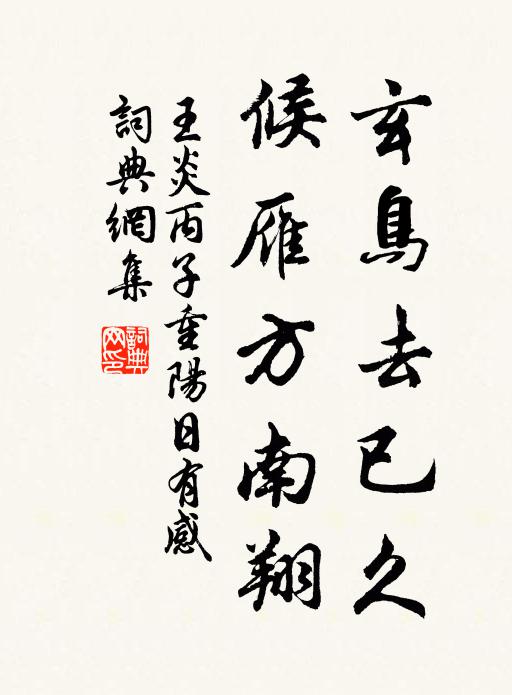 玄鳥去已久
候雁方南翔
王炎丙子重陽日有感
詞典網集
詞典網印